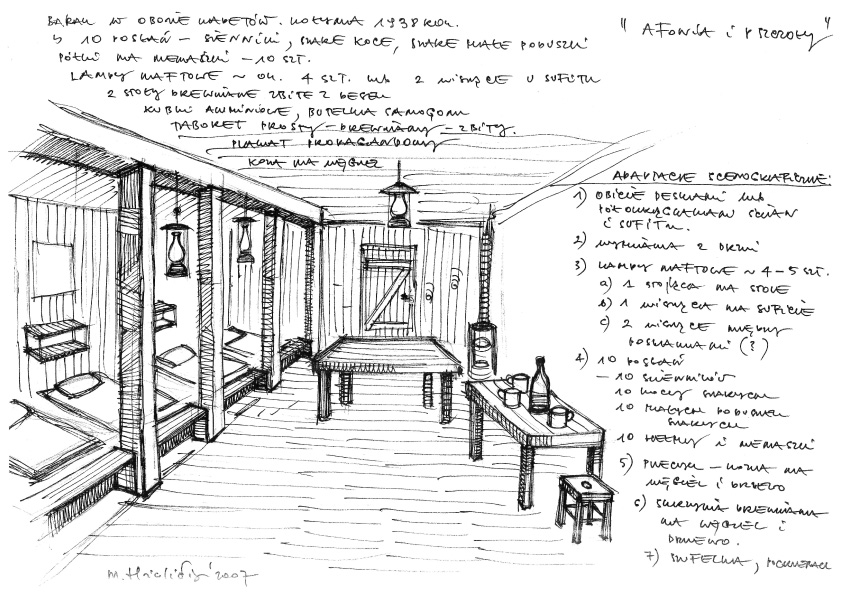 BARAK W OBOZIE KOŁYMA 1938 ROK.
10 POSŁAŃ – SIENNIKI, SZARE KOCE, SZARE MAŁE PODUSZKI
PÓŁKI NA MENAŻKI – 10 SZT.
LAMPY NAFTOWE ~ OK. 4 SZT. LUB 2 WISZĄCE U SUFITU
2 STOŁY DREWNIANE ZBITE Z DESEK
KUBKI ALUMINIOWE, BUTELKA SAMOGONU
TABORET PROSTY – DREWNIANY – ZBITY.
PLAKAT PROPAGANDOWY
KOZA NA WĘGIEL
"AFONIA I PSZCZOŁY"
ADAPTACJE SCENOGRAFICZNE:
1) OBICIE DESKAMI LUB
ŚCIAN
I SUFITU.
2) WYMIANA 2 DRZWI
3) LAMPY NAFTOWE ~ 4–5 SZT.
a) 1 STOJĄCA NA STOLE
b) 1 WISZĄCA NA SUFICIE
c) 2 WISZĄCE MIĘDZY
POSŁANIAMI (?)
4) 10 POSŁAŃ
– 10 SIENNIKÓW
10 KOCY SZARYCH
10 MAŁYCH PODUSZEK
SZARYCH
10 I MENAŻKI
5) PIECYK – KOZA NA
WĘGIEL I DRZEWO
6) SKRZYNIA DREWNIANA
NA WĘGIEL I
DRZEWO.
7) SZUFELKA, POGRZEBACZ
2007